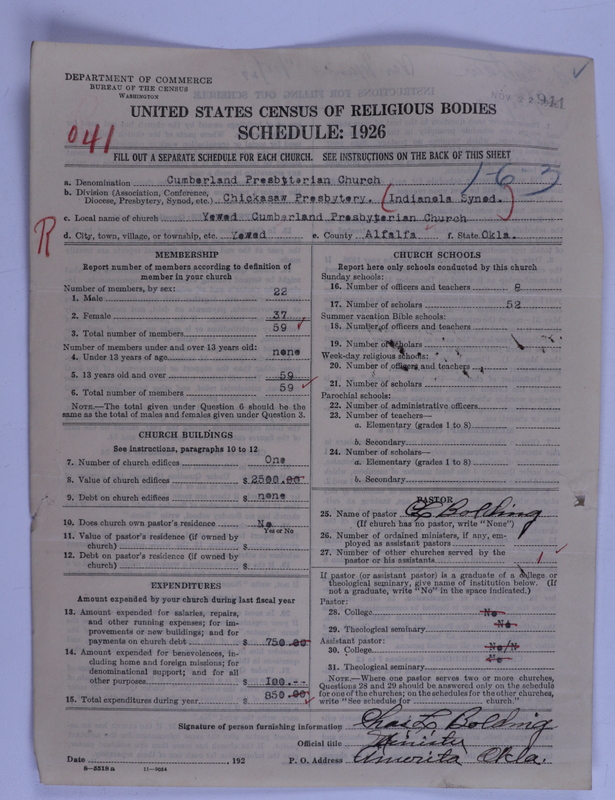 DEPARTMENT OF COMMERCE
BUREAU OF THE CENSUS
WASHINGTON
NOV 941
UNITED STATES CENSUS OF RELIGIOUS BODIES
041
SCHEDULE: 1926
FILL OUT A SEPARATE SCHEDULE FOR EACH CHURCH. SEE INSTRUCTIONS ON THE BACK OF THIS SHEET
1-6-3
a. Denomination Cumberland Presbtterian Church
b. Division (Association, Conference, Diocese, Presbytery, Synod, etc.) Chickasaw Presbytery. (Indianola Synod.)
c. Local name of church Yewed Cumberland Presbyterian Church
R
d. City, town, village, or township, etc. Yewed e. County Alfalfa f. State Okla.
MEMBERSHIP
Report number of members according to definition of
member in your church
Number of members, by sex:
1. Male 22
2. Female 37
3. Total number of members 59
Number of members under and over 13 years old:
4. Under 13 years of age none
5. 13 years old and over 59
6. Total number of members 59
NOTE.—The total given under Question 6 should be the
same as the total of males and females given under Question 3.
CHURCH BUILDINGS
See instructions, paragraphs 10 to 12
7. Number of church edifices One
8. Value of church edifices $ 2500.00
9. Debt on church edifices $ none
10. Does church own pastor's residence No
Yes or No
11. Value of pastor's residence (if owned by
church) $
12. Debt on pastor's residence (if owned by
church) $
EXPENDITURES
Amount expended by your church during last fiscal year
13. Amount expended for salaries, repairs,
and other running expenses; for im-
provements or new buildings; and for
payments on church debt $ 750.00
14. Amount expended for benevolences, in-
cluding home and foreign missions; for
denominational support; and for all
other purposes $ 100.--
15. Total expenditures during year $ 850.00
CHURCH SCHOOLS
Report here only schools conducted by this church
Sunday schools:
16. Number of officers and teachers 8
17. Number of scholars 52
Summer vacation Bible schools:
18. Number of officers and teachers
19. Number of scholars
Week-day religious schools:
20. Number of officers and teachers
21. Number of scholars
Parochial schools:
22. Number of administrative officers
23. Number of teachers—
a. Elementary (grades 1 to 8)
b. Secondary
24. Number of scholars—
a. Elementary (grades 1 to 8)
b. Secondary
PASTOR
25. Name of pastor C L Bolding
(If church has no pastor, write "None")
26. Number of ordained ministers, if any, em-
ployed as assistant pastors
27. Number of other churches served by the
pastor or his assistants 1
If pastor (or assistant pastor) is a graduate of a college or
theological seminary, give name of institution below. (If
not a graduate, write "No" in the space indicated.)
Pastor:
28. College No
29. Theological seminary No
Assistant pastor:
30. College No/N
31. Theological seminary No
NOTE.—Where one pastor serves two or more churches,
Questions 28 and 29 should be answered only on the schedule
for one of the churches; on the schedules for the other churches,
write "See schedule for church."
Signature of person furnishing information Chas L Bolding
Official title Minister
Date , 192 P. O. Address Amorita Okla.
8-5518a 11-9034